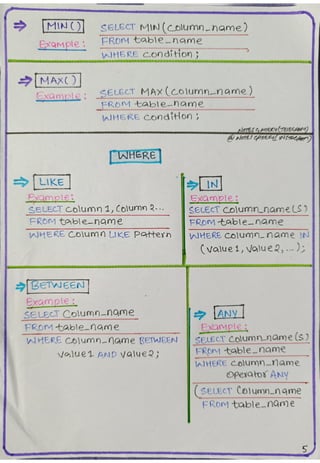 MIN()
Example:
SELECT MIN(column_name)
FROM table_name
WHERE condition;
MAX()
Example:
SELECT MAX(column_name)
FROM table_name
WHERE condition;
WHERE
LIKE
Example:
SELECT column1, Column2...
FROM table_name
WHERE Column LIKE Pattern
IN
Example:
SELECT column_name(s)
FROM table_name
WHERE column_name IN
(value1, value2, ...);
BETWEEN
Example:
SELECT Column_name
FROM table_name
WHERE column_name BETWEEN
value1 AND value2;
ANY
Example:
SELECT column_name(s)
FROM table_name
WHERE column_name
operator ANY
(SELECT Column_name
FROM table_name
5